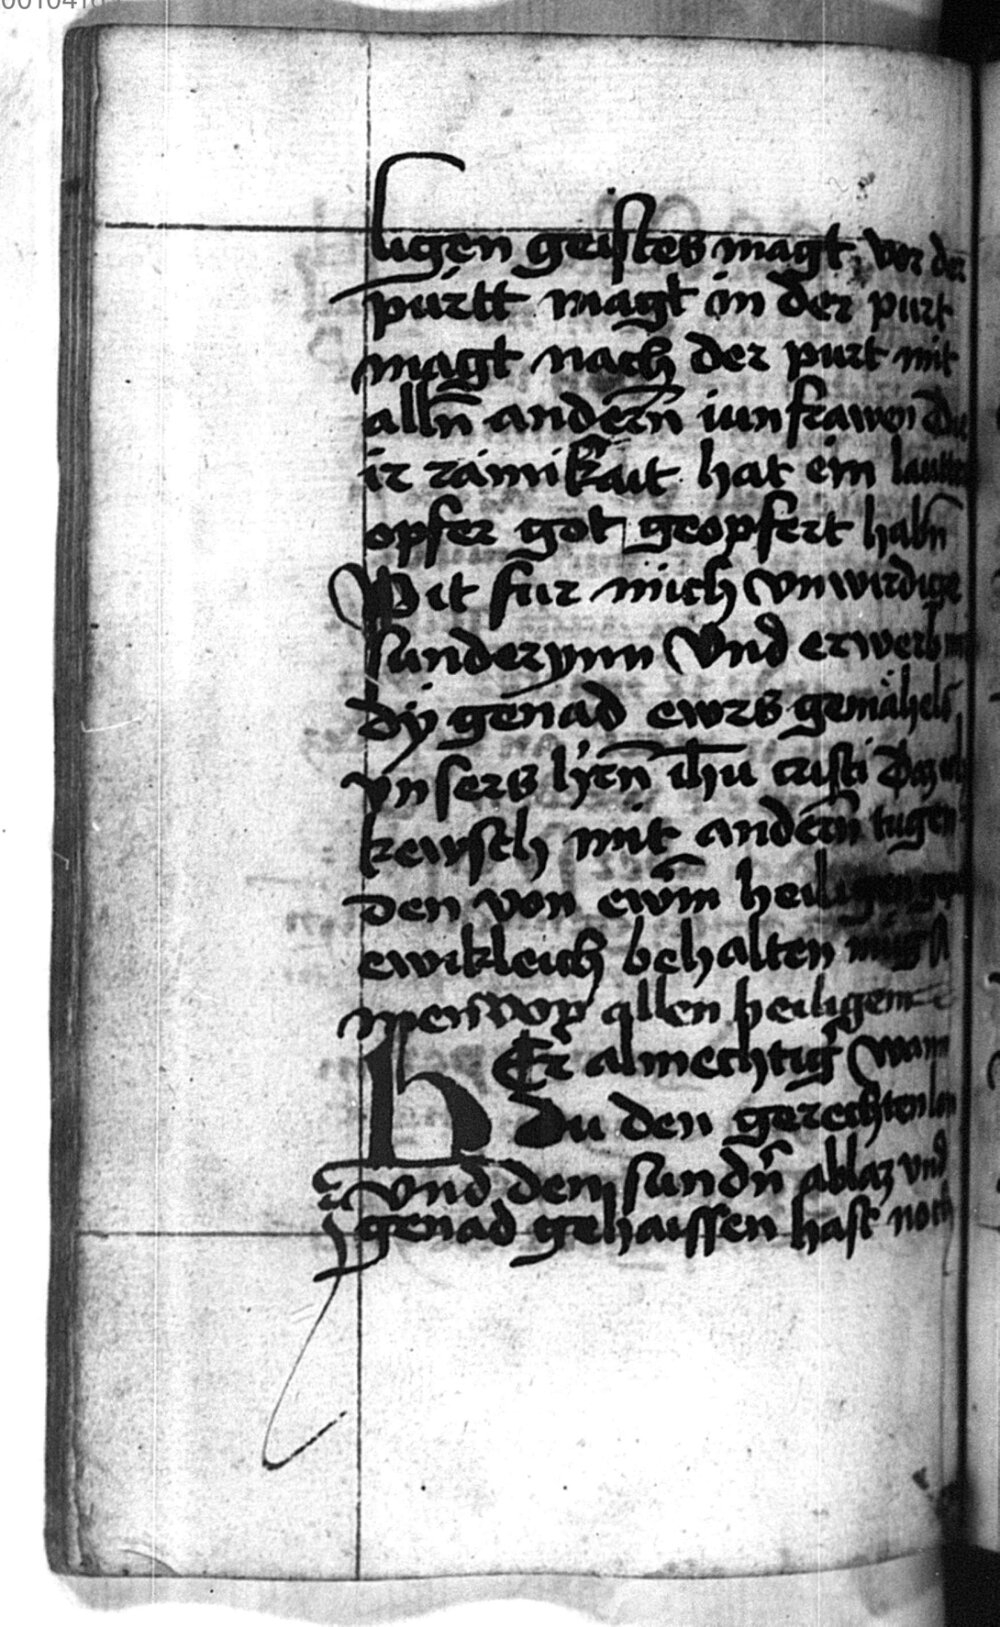 ligen geistes magt vor der
purtt magt in der purt
magt nach der purt mit
alln̄ andern̄ iunfrawen Du
ir rainikait hat ein lautter
opfer got geopfert habn̄
Pit fur mich vnwirdige
sunderynn Vnd erwerb mir
dÿ genad ewrs gemähels
vnsers hr̄n ih̄u cristi Daz ich
kewsch mit andern̄ tugen
den von ewm̄ heiligen
ewikleich behalten müg A
men vor allen heiligen
hEr almechtig̉ wann
du den gerechten lon
vnd dem sundn̄ ablaz vnd
genad gehaissen hast noch